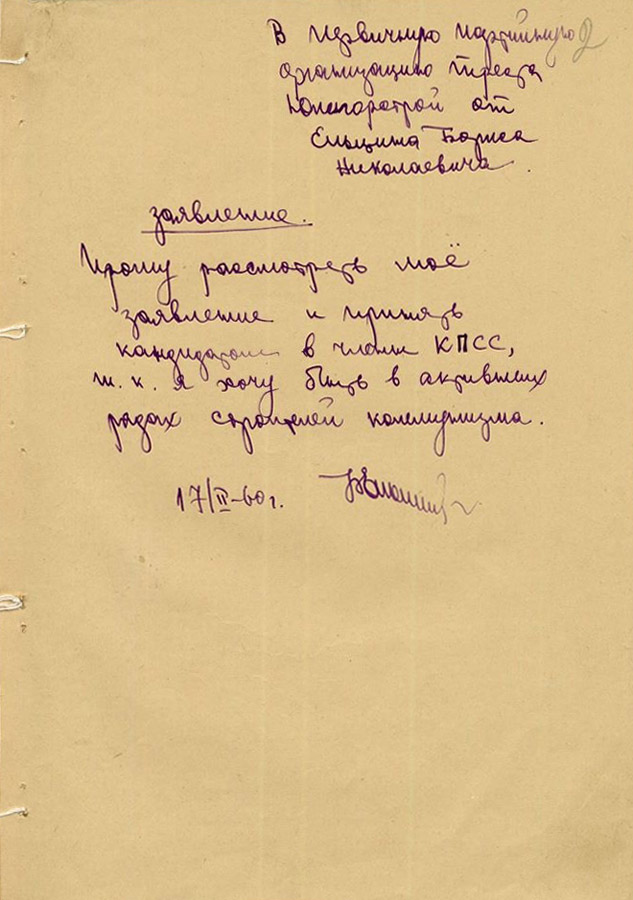 В первичную партийную 2
организацию треста
Южгорстрой от
Ельцина Бориса
Николаевича.
заявление.
Прошу рассмотреть моё
заявление и принять
кандидатом в члены КПСС,
т. к. я хочу быть в активных
рядах строителей коммунизма.
17/II-60 г.